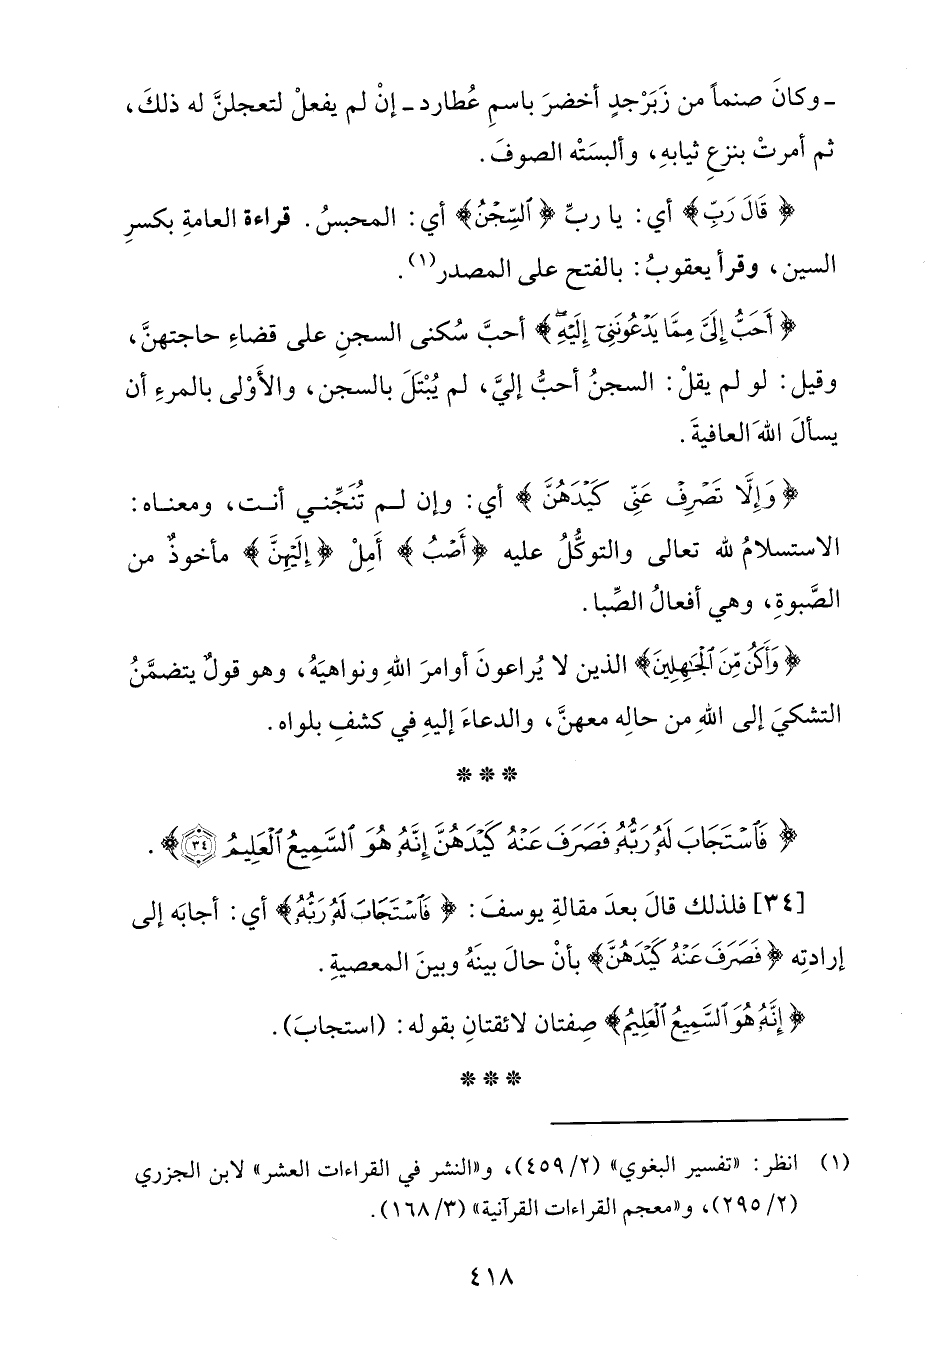 ـ وكانَ صنماً من زَبَرْجدٍ أخضرَ باسمِ عُطارد ـ إنْ لم يفعلْ لتعجلنَّ له ذلكَ،
ثم أمرتْ بنزعِ ثيابهِ، وألبسَتْه الصوفَ.
﴿قَالَ رَبِّ﴾ أي: يا ربِّ ﴿ٱلسِّجْنُ﴾ أي: المحبسُ. قراءة العامةِ بكسرِ
السين، وقرأ يعقوبُ: بالفتح على المصدر(١).
﴿أَحَبُّ إِلَىَّ مِمَّا يَدْعُونَنِىٓ إِلَيْهِۖ﴾ أحبَّ سُكنى السجنِ على قضاءِ حاجتهنَّ،
وقيل: لو لم يقلْ: السجنُ أحبُّ إليَّ، لم يُبْتَلَ بالسجن، والأَوْلى بالمرءِ أن
يسألَ اللهَ العافيةَ.
﴿وَإِلَّا تَصْرِفْ عَنِّى كَيْدَهُنَّ﴾ أي: وإن لـم تُنَجِّنـي أنـت، ومعنـاه:
الاستسلامُ لله تعالى والتوكُّلُ عليه ﴿أَصْبُ﴾ أَمِلْ ﴿إِلَيْهِنَّ﴾ مأخوذٌ من
الصَّبوةِ، وهي أفعالُ الصِّبا.
﴿وَأَكُن مِّنَ ٱلْجَٰهِلِينَ﴾ الذين لا يُراعونَ أوامرَ اللهِ ونواهيَهُ، وهو قولٌ يتضمَّنُ
التشكيَ إلى اللهِ من حالِه معهنَّ، والدعاءَ إليهِ في كشفِ بلواه.
* * *
﴿فَٱسْتَجَابَ لَهُۥ رَبُّهُۥ فَصَرَفَ عَنْهُ كَيْدَهُنَّ إِنَّهُۥ هُوَ ٱلسَّمِيعُ ٱلْعَلِيمُ ٣٤﴾.
[٣٤] فلذلك قالَ بعدَ مقالةِ يوسفَ: ﴿فَٱسْتَجَابَ لَهُۥ رَبُّهُۥ﴾ أي: أجابَه إلى
إرادتِه ﴿فَصَرَفَ عَنْهُ كَيْدَهُنَّ﴾ بأنْ حالَ بينَهُ وبينَ المعصيةِ.
﴿إِنَّهُۥ هُوَ ٱلسَّمِيعُ ٱلْعَلِيمُ﴾ صِفتان لائقتانِ بقوله: (استجابَ).
* * *
(١) انظر: «تفسير البغوي» (٢/ ٤٥٩)، و«النشر في القراءات العشر» لابن الجزري
(٢/ ٢٩٥)، و«معجم القراءات القرآنية» (٣/ ١٦٨).
٤١٨